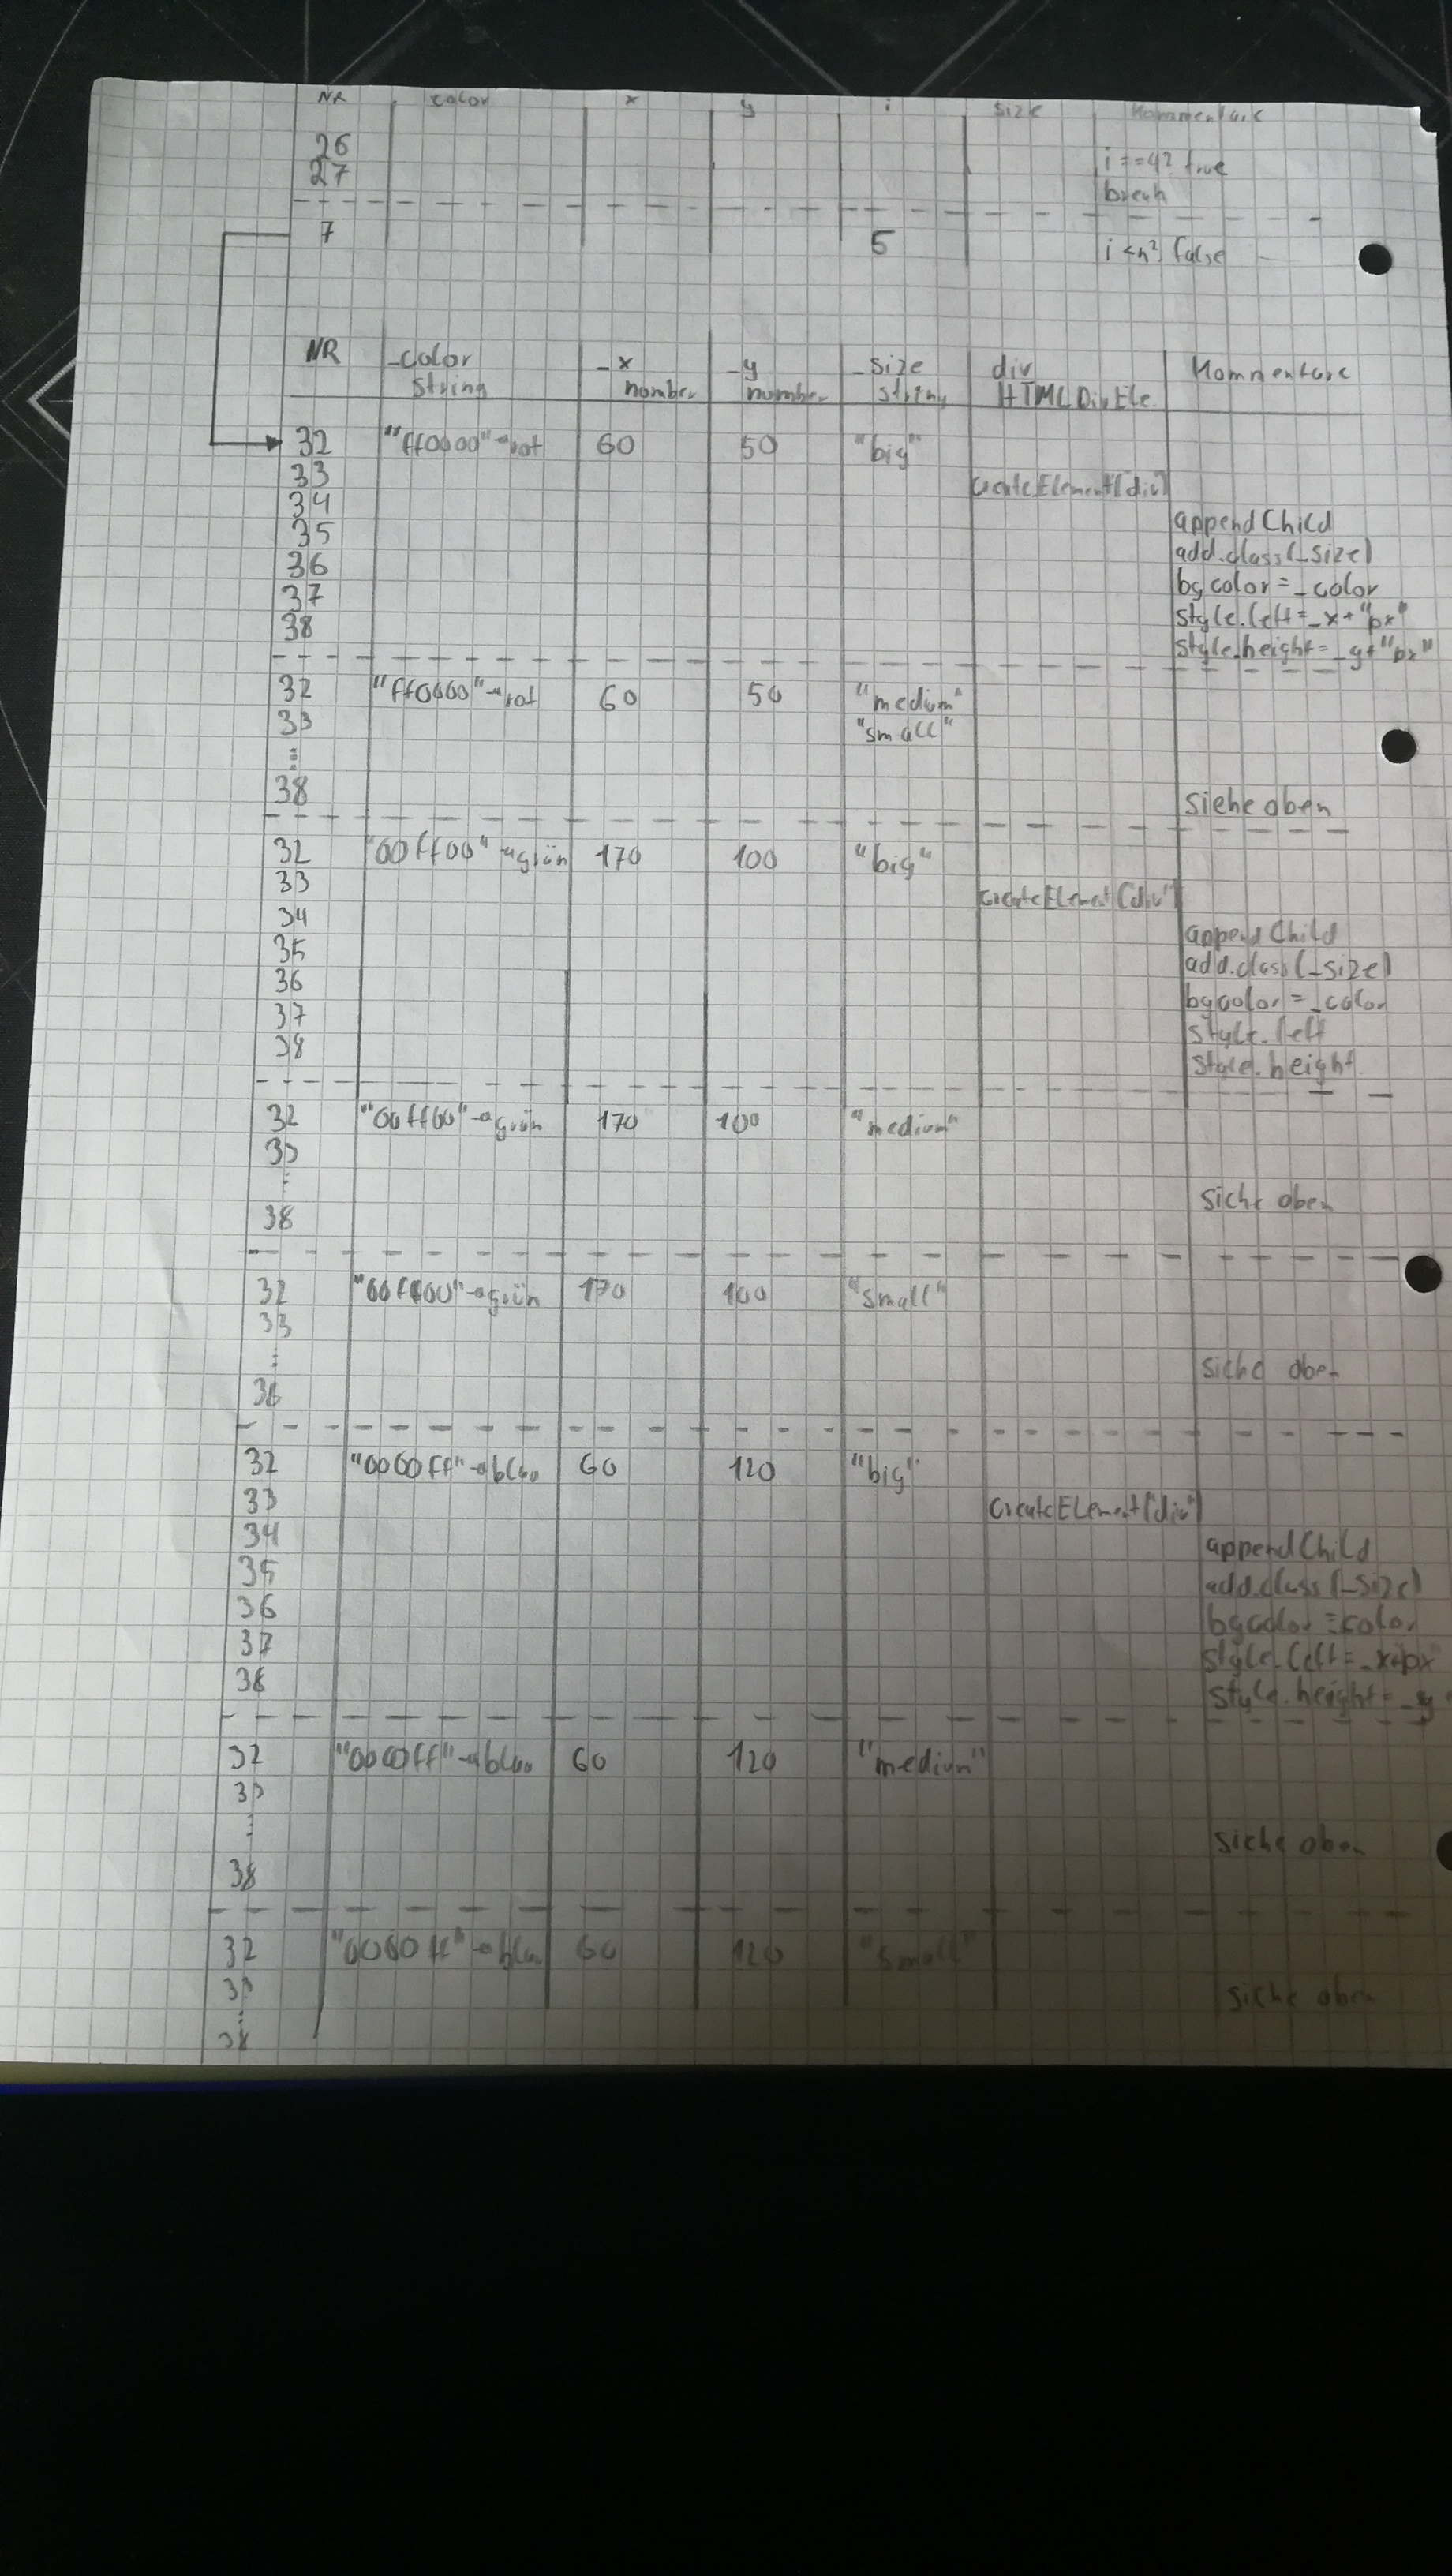 NR color x y i size Kommentare
26 i==4? true
27 break
7 5 i<n? false
NR _color _x _y _size div Kommentare
string number number string HTMLDivEle.
32 "ff0000"→rot 60 50 "big"
33 createElement("div")
34 appendChild
35 add.class(_size)
36 bgcolor=_color
37 style.left=_x+"px"
38 style.height=_y+"px"
32 "ff0000"→rot 60 50 "medium"
33 "small"
⋮
38 siehe oben
32 "00ff00"→grün 170 100 "big"
33 createElement("div")
34 appendChild
35 add.class(_size)
36 bgcolor=_color
37 style.left
38 style.height
32 "00ff00"→grün 170 100 "medium"
33
⋮ siehe oben
38
32 "00ff00"→grün 170 100 "small"
33
⋮ siehe oben
38
32 "0000ff"→blau 60 120 "big"
33 createElement("div")
34 appendChild
35 add.class(_size)
36 bgcolor=color
37 style.left=_x+px
38 style.height=_y
32 "0000ff"→blau 60 120 "medium"
33
⋮ siehe oben
38
32 "0000ff"→blau 60 120 "small"
33 siehe oben
⋮
38